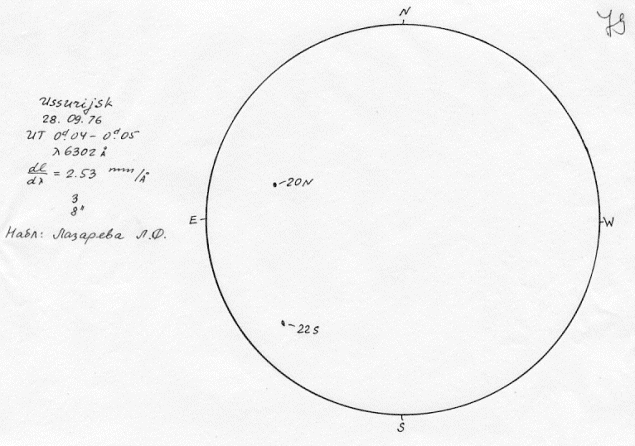 N
Ussurijsk
28.09.76
UT 0ᵈ.04 - 0ᵈ.05
λ 6302 Å
dl/dλ = 2.53 mm/Å
3
8"
Набл: Лазарева Л.Ф.
20N
E
W
22S
S